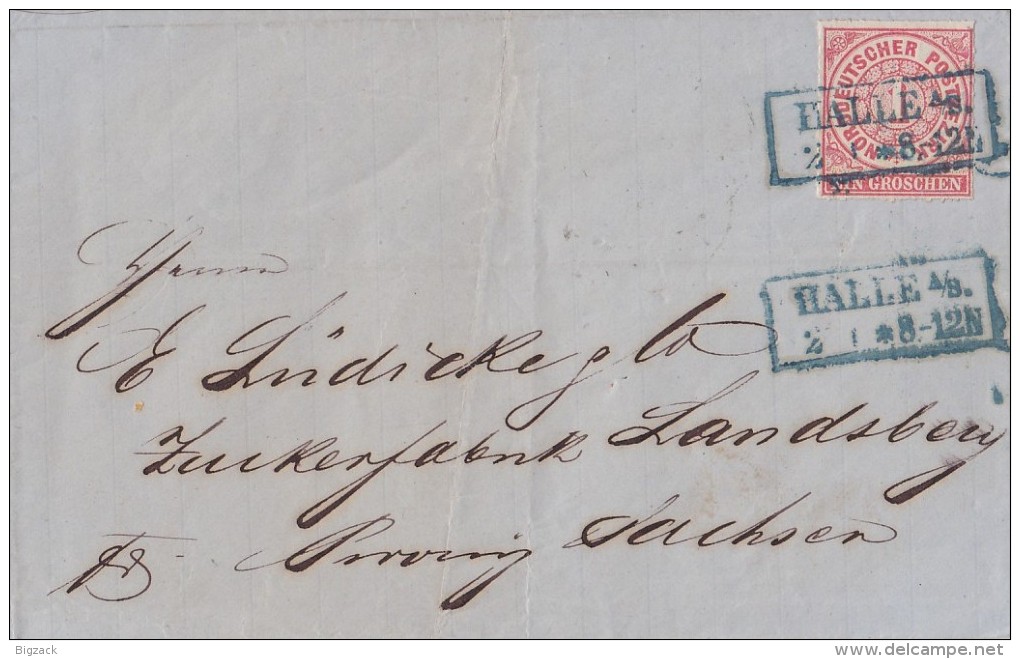 NORDDEUTSCHER POSTBEZIRK
1
EIN GROSCHEN
HALLE A/S.
2 1 * 8-12N
HALLE A/S.
2 1 * 8-12N
Herrn
E Lüdicke & Co
Zuckerfabrik Landsberg
Provinz Sachsen
Bigzack
delcampe.net